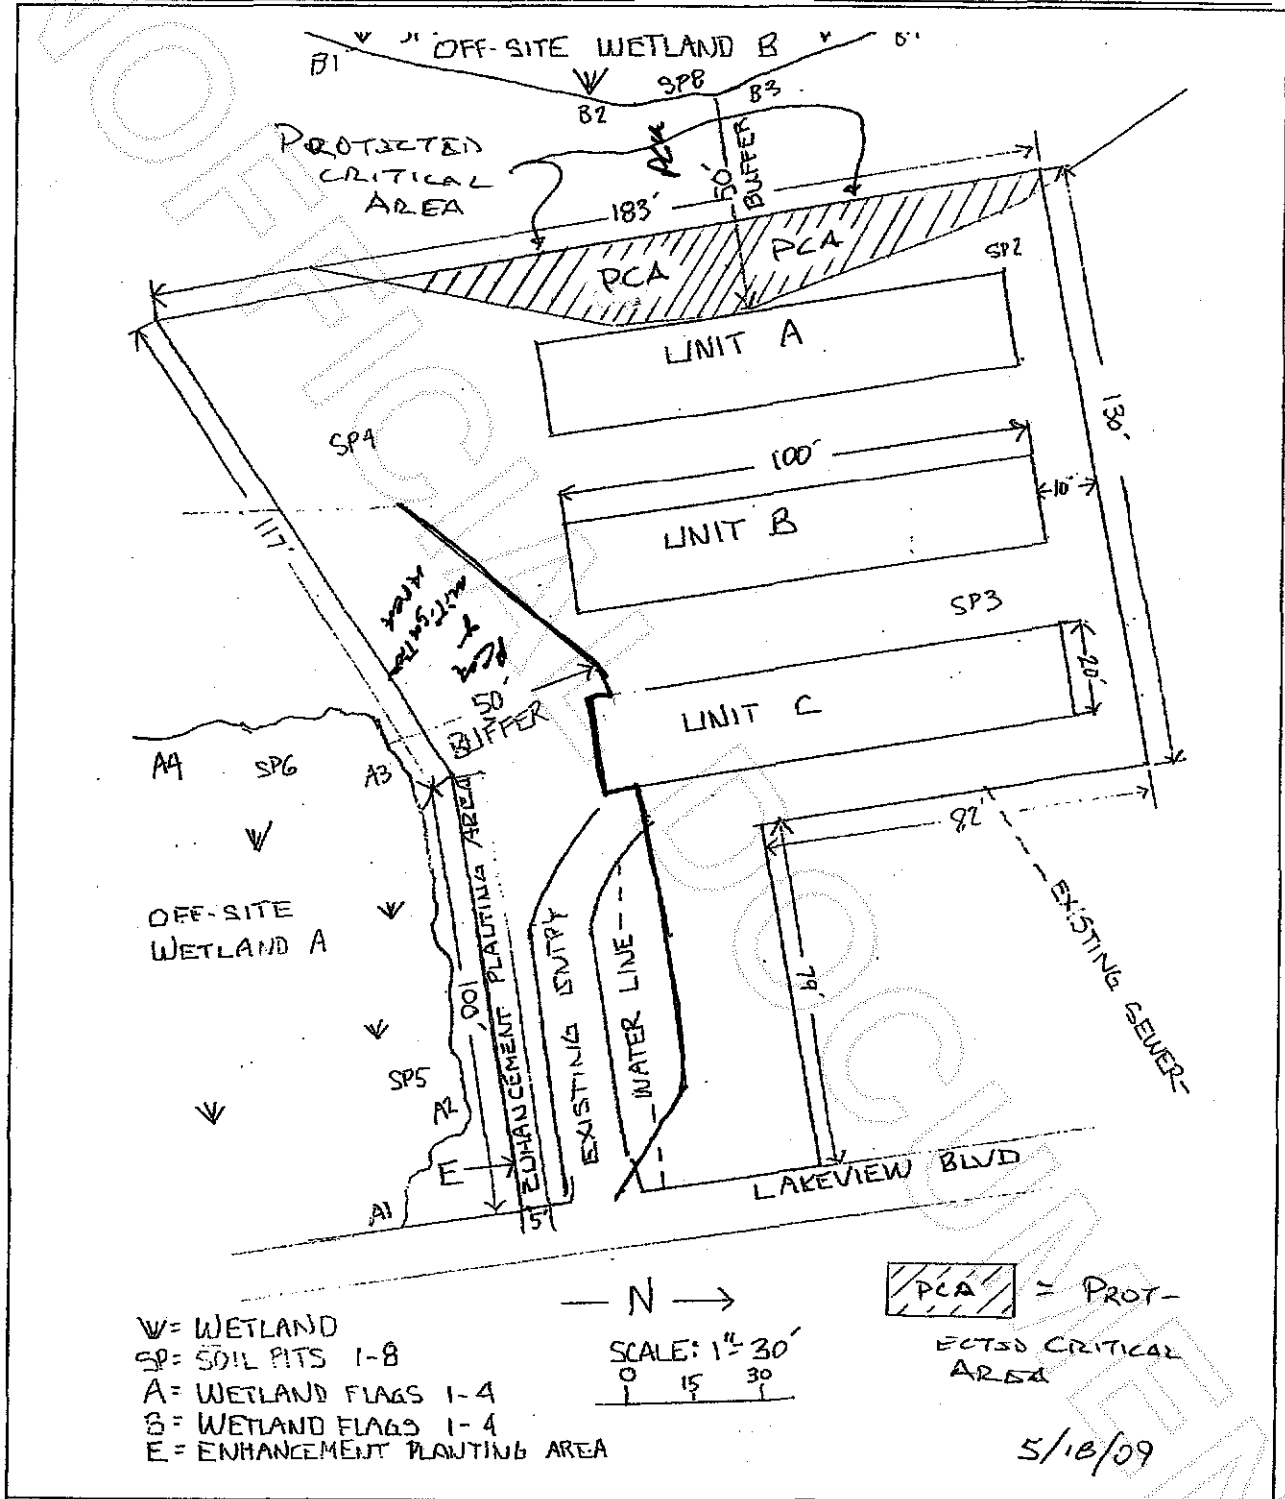 OFF-SITE WETLAND B
B1
SP8
B2
B3
PROTECTED
CRITICAL
AREA
PCA
50'
BUFFER
183'
PCA
PCA
SP2
UNIT A
130'
SP4
100'
10'
UNIT B
117'
SP3
PCA
&
mitigation
Area
20'
50'
BUFFER
UNIT C
A4
SP6
A3
82'
OFF-SITE
WETLAND A
100'
ENHANCEMENT PLANTING AREA
EXISTING ENTRY
WATER LINE
79'
EXISTING SEWER
SP5
A2
E
A1
5'
LAKEVIEW BLVD
N
SCALE: 1"= 30'
0 15 30
PCA = PROT-
ECTED CRITICAL
AREA
W = WETLAND
SP= SOIL PITS 1-8
A= WETLAND FLAGS 1-4
B= WETLAND FLAGS 1-4
E= ENHANCEMENT PLANTING AREA
5/18/09
UNOFFICIAL DOCUMENT